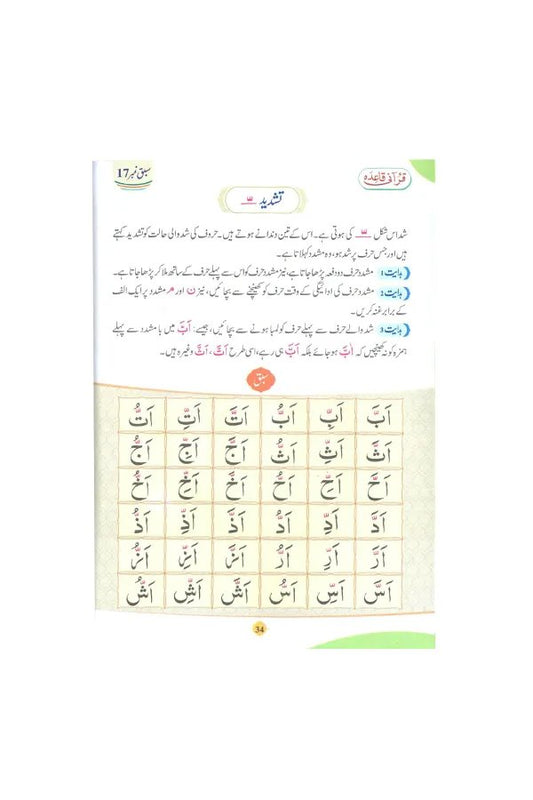 قرآنی قاعدہ
سبق نمبر 17
تشدید ـّ
شد اس شکل ـّ کی ہوتی ہے۔ اس کے تین دندانے ہوتے ہیں۔ حروف کی شد والی حالت کو تشدید کہتے
ہیں اور جس حرف پر شد ہو، وہ مشدد کہلاتا ہے۔
ہدایت 1 مشدد حرف دو دفعہ پڑھا جاتا ہے، نیز مشدد حرف کو اس سے پہلے حرف کے ساتھ ملا کر پڑھا جاتا ہے۔
ہدایت 2 مشدد حرف کی ادائیگی کے وقت حرف کو کھینچنے سے بچائیں، نیز ن اور م مشدد پر ایک الف
کے برابر غنہ کریں۔
ہدایت 3 شد والے حرف سے پہلے حرف کو لمبا ہونے سے بچائیں، جیسے: اَبَّ میں با مشدد سے پہلے
ہمزہ کو نہ کھینچیں کہ اٰبَّ ہو جائے بلکہ اَبَّ ہی رہے، اسی طرح اَتَّ، اَثَّ وغیرہ ہیں۔
سبق
اَبَّ اَبِّ اَبُّ اَتَّ اَتِّ اَتُّ
اَثَّ اَثِّ اَثُّ اَجَّ اَجِّ اَجُّ
اَحَّ اَحِّ اَحُّ اَخَّ اَخِّ اَخُّ
اَدَّ اَدِّ اَدُّ اَذَّ اَذِّ اَذُّ
اَرَّ اَرِّ اَرُّ اَزَّ اَزِّ اَزُّ
اَسَّ اَسِّ اَسُّ اَشَّ اَشِّ اَشُّ
34